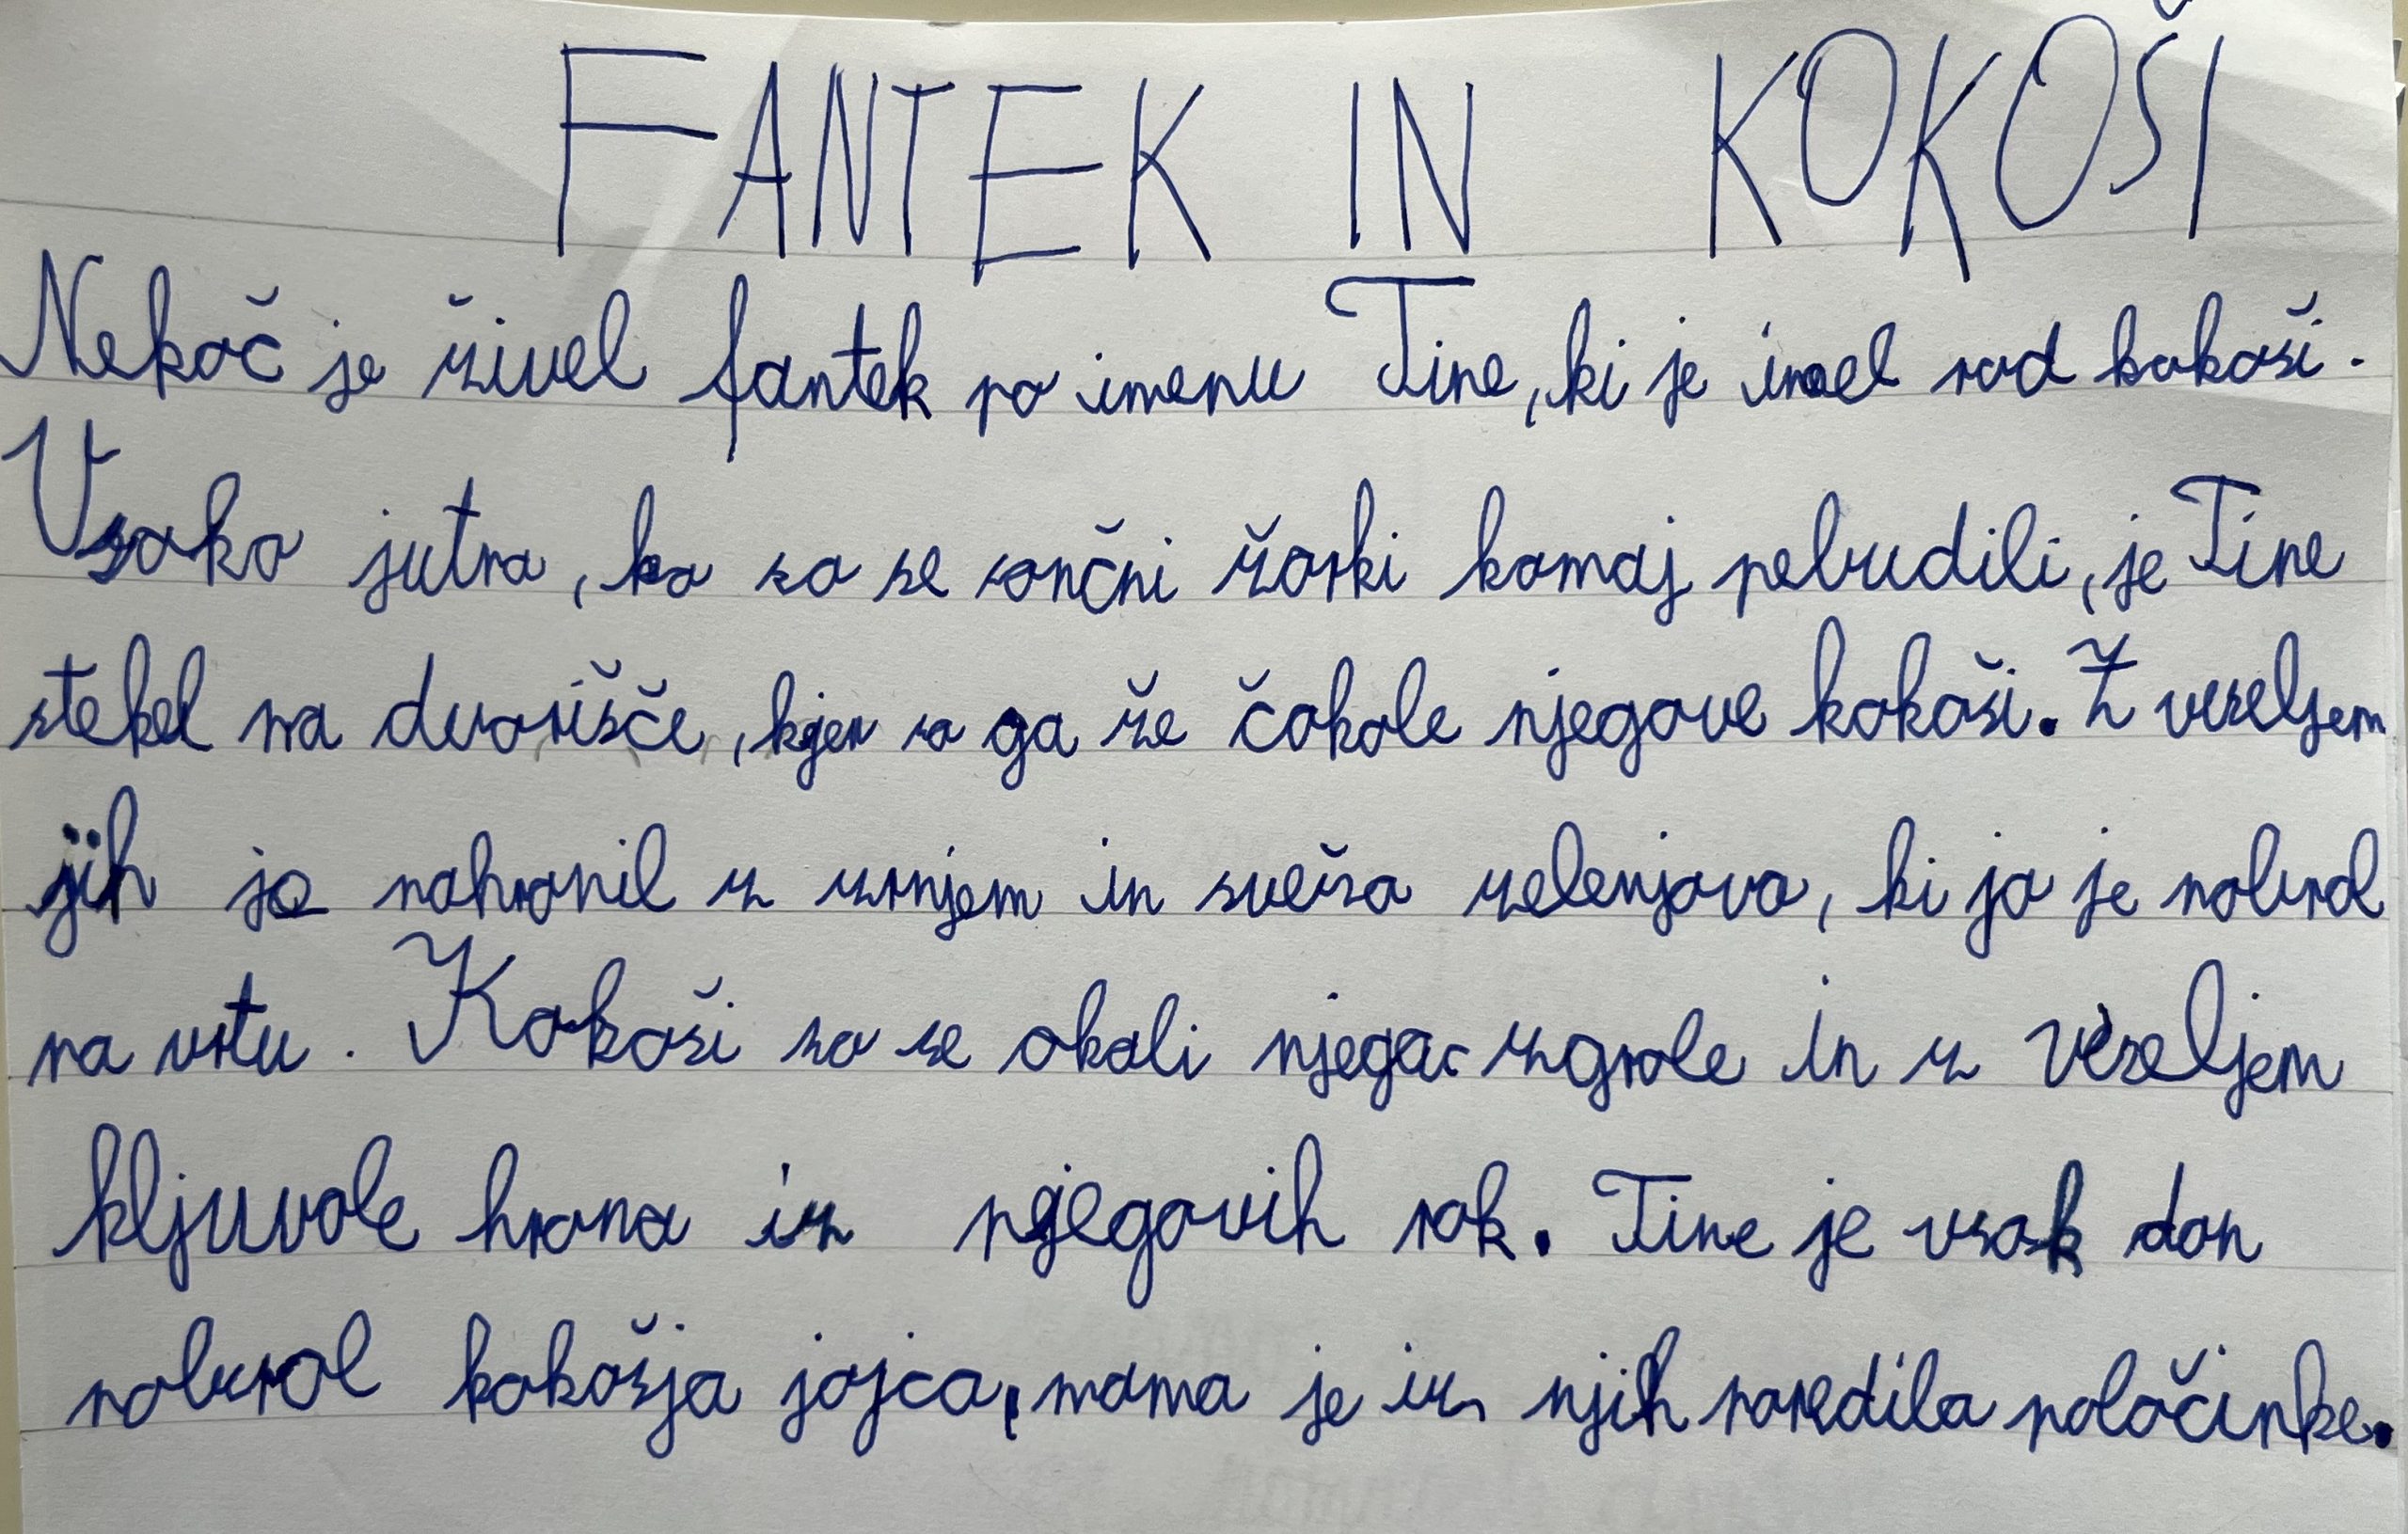 FANTEK IN KOKOŠI
Nekoč je živel fantek po imenu Tine, ki je imel rad kokoši.
Vsako jutro, ko so se sončni žarki komaj prebudili, je Tine
stekel na dvorišče, kjer so ga že čakale njegove kokoši. Z veseljem
jih je nahranil z zrnjem in svežo zelenjavo, ki jo je nabral
na vrtu. Kokoši so se okoli njega zgrnle in z veseljem
kljuvale hrano iz njegovih rok. Tine je vsak dan
nabral kokošja jajca, mama je iz njih naredila palačinke.